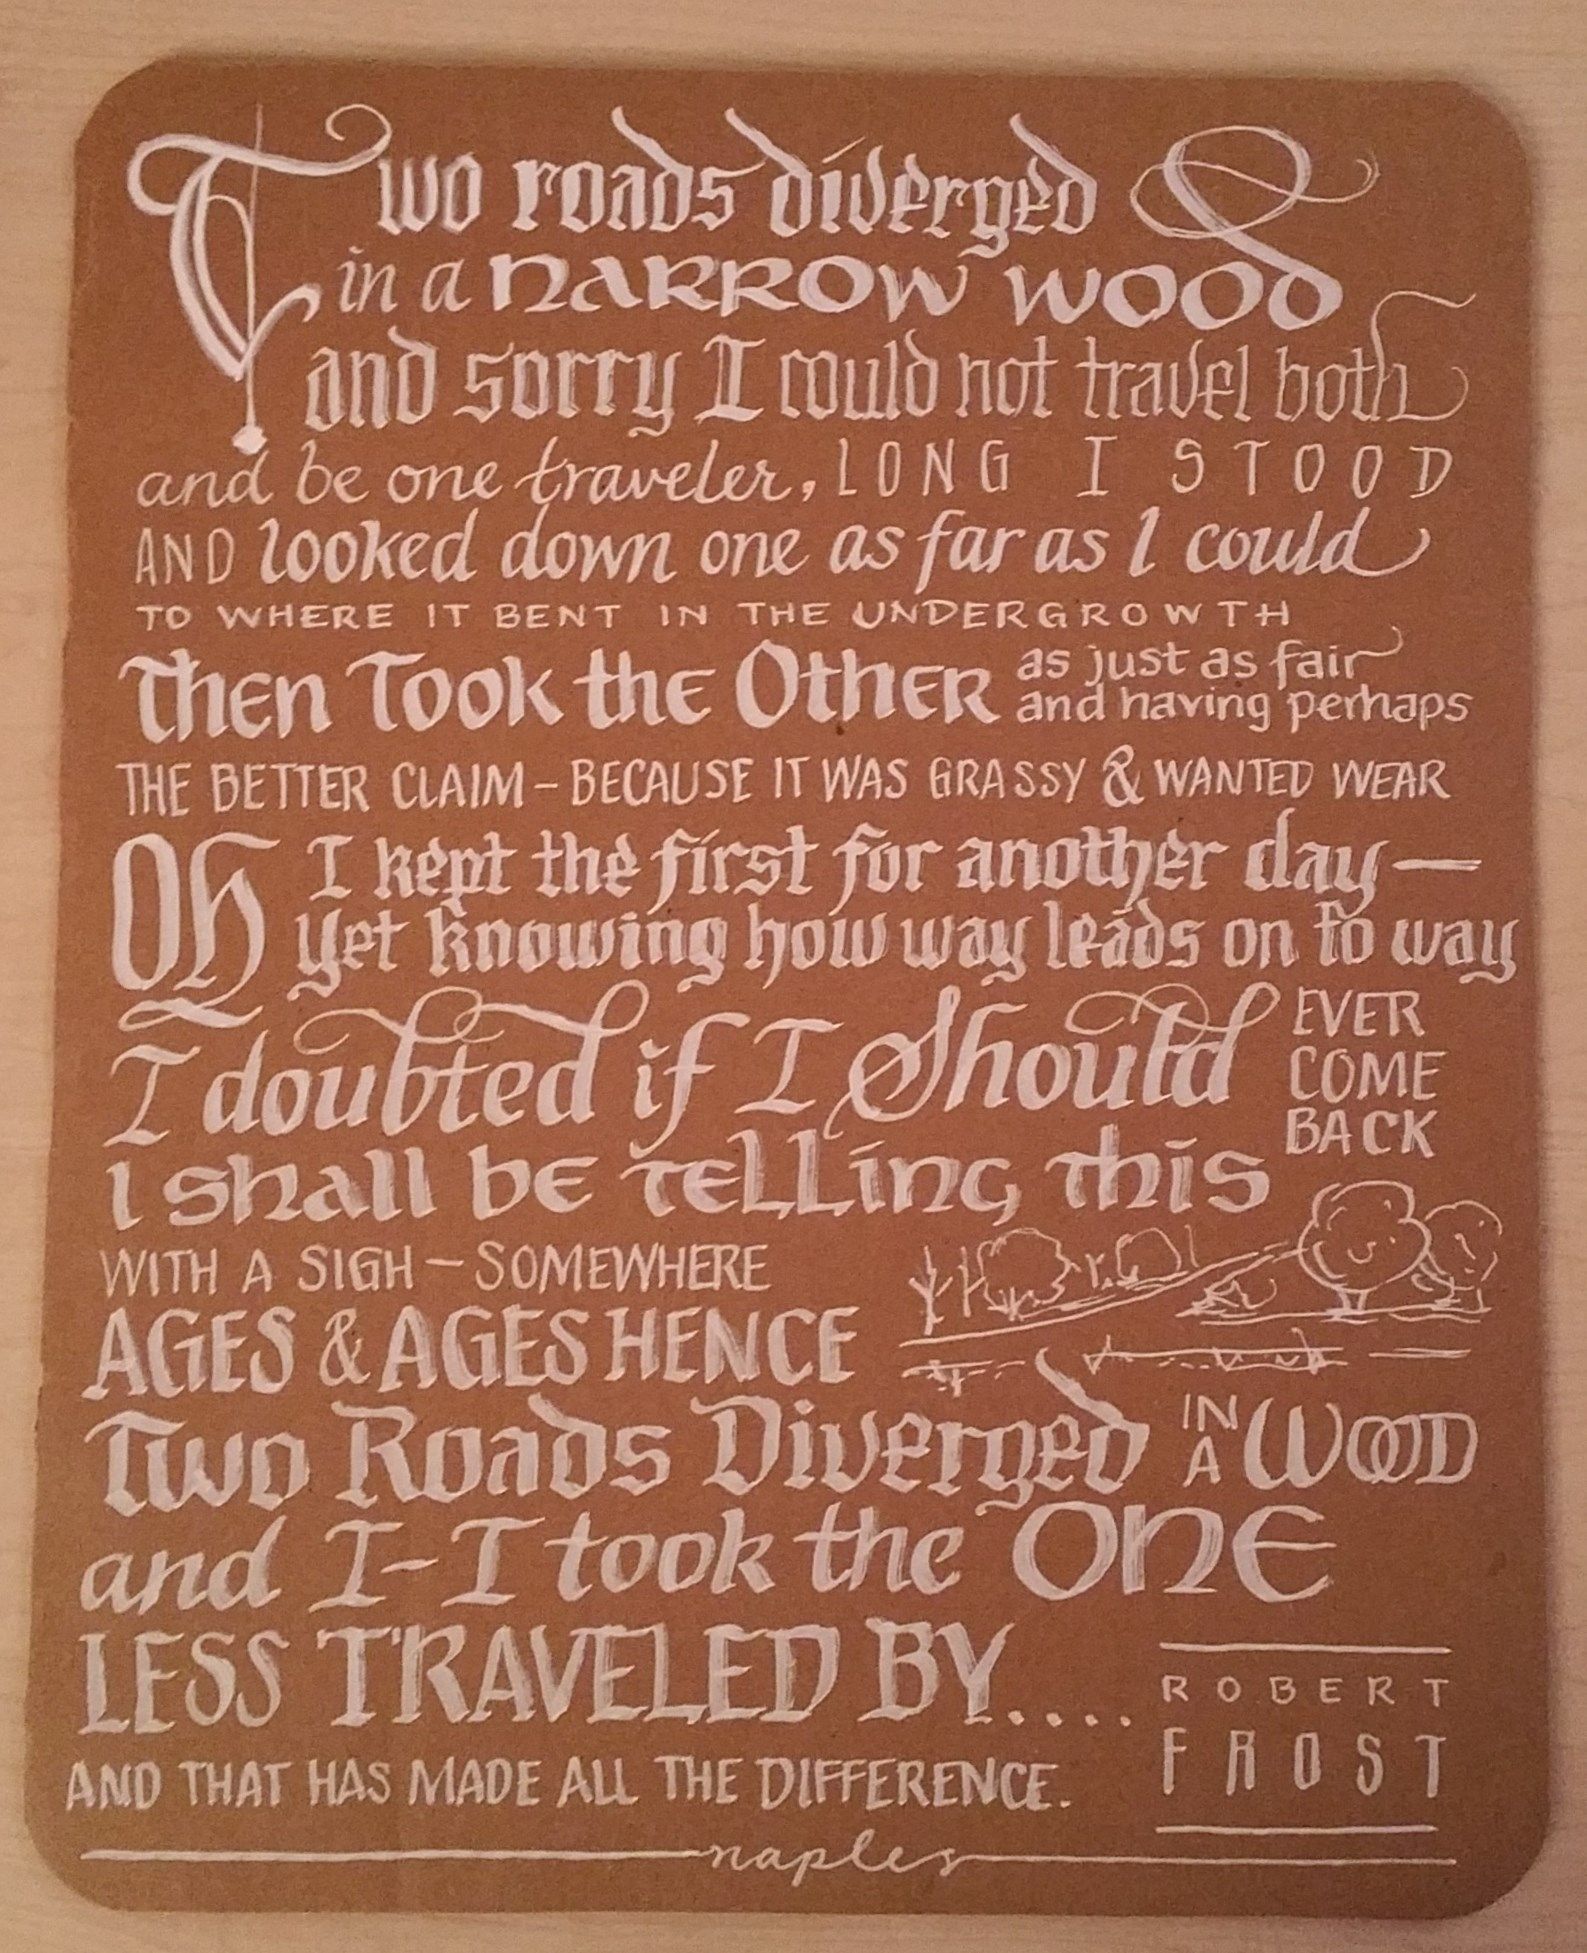 Two roads diverged
in a narrow wood
and sorry I could not travel both
and be one traveler, LONG I STOOD
AND looked down one as far as I could
TO WHERE IT BENT IN THE UNDERGROWTH
Then Took the Other as just as fair
and having perhaps
THE BETTER CLAIM – BECAUSE IT WAS GRASSY & WANTED WEAR
Oh I kept the first for another day —
Yet knowing how way leads on to way
I doubted if I Should EVER
COME
BACK
I shall be telling this
WITH A SIGH – SOMEWHERE
AGES & AGES HENCE
Two Roads Diverged IN A WOOD
and I – I took the ONE
LESS TRAVELED BY....
AND THAT HAS MADE ALL THE DIFFERENCE.
ROBERT
FROST
naples